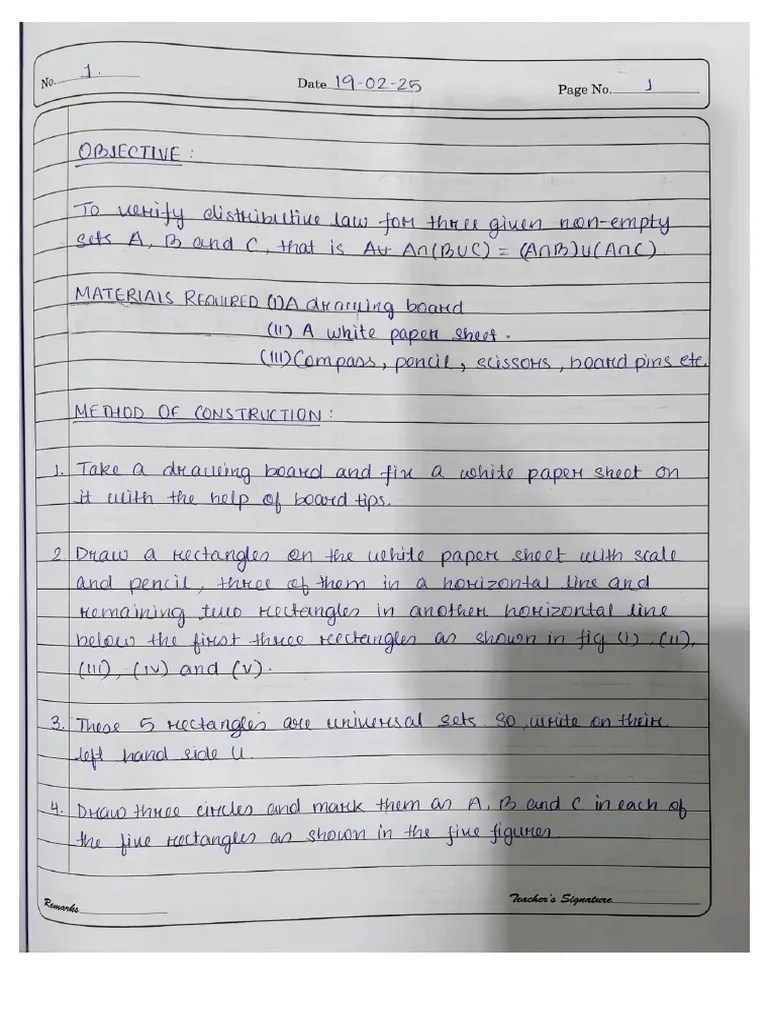 No. 1.
Date 19-02-25
Page No. 1
OBJECTIVE :
To verify distributive law for three given non-empty
sets A, B and C, that is A∩(B∪C) = (A∩B)∪(A∩C).
MATERIALS REQUIRED (I) A drawing board
(II) A white paper sheet.
(III) Compass, pencil, scissors, board pins etc.
METHOD OF CONSTRUCTION :
1. Take a drawing board and fix a white paper sheet on
it with the help of board tips.
2 Draw a rectangles on the white paper sheet with scale
and pencil, three of them in a horizontal line and
remaining two rectangles in another horizontal line
below the first three rectangles as shown in fig (I), (II),
(III), (IV) and (V).
3. These 5 rectangles are universal sets so, write on their
left hand side U.
4. Draw three circles and mark them as A, B and C in each of
the five rectangles as shown in the five figures
Remarks
Teacher's Signature